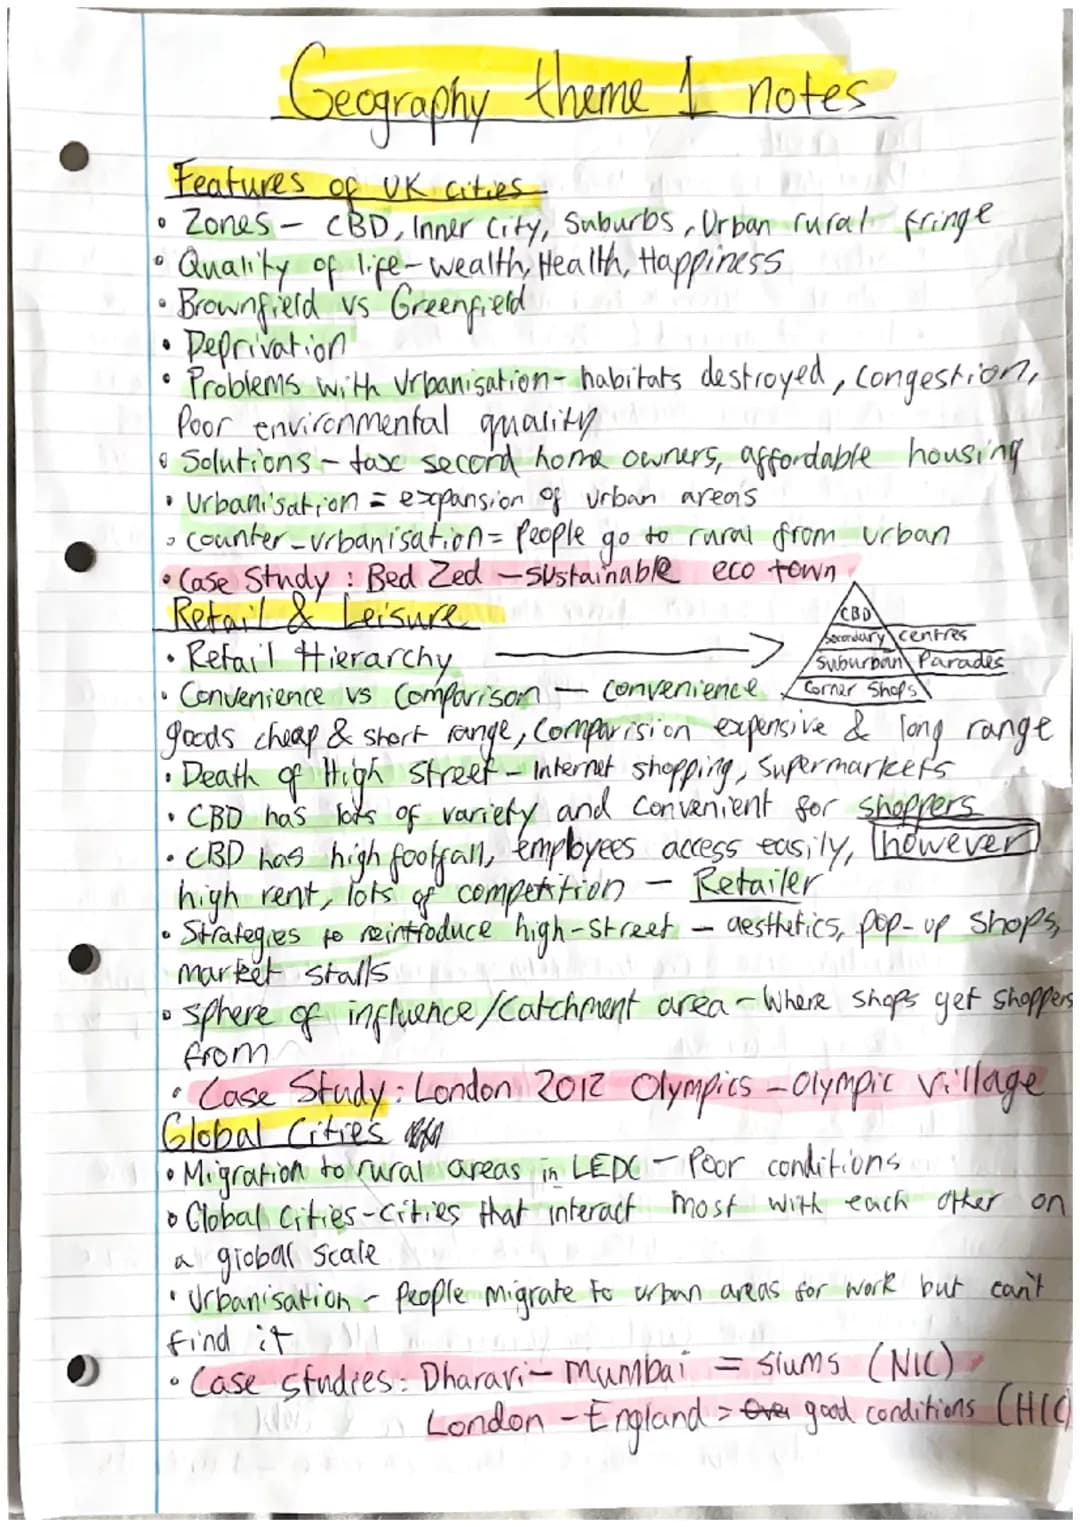 Geography theme 1 notes
Features of UK cities
• Zones - CBD, Inner City, Suburbs, Urban rural fringe
• Quality of life - wealth, Health, Happiness
• Brownfield vs Greenfield
• Deprivation
• Problems with Urbanisation - habitats destroyed, congestion,
Poor environmental quality
• Solutions - tax second home owners, affordable housing
• Urbanisation = expansion of urban areas
• counter-urbanisation = People go to rural from urban
• Case Study : Bed Zed - sustainable eco town
Retail & Leisure
• Retail Hierarchy →
CBD
Secondary centres
Suburban Parades
Corner Shops
• Convenience vs Comparison - convenience
goods cheap & short range, Comparision expensive & long range
• Death of High street - Internet shopping, Supermarkets
• CBD has lots of variety and convenient for shoppers
• CBD has high footfall, employees access easily, however
high rent, lots of competition - Retailer
• Strategies to reintroduce high-street - aesthetics, pop-up shops,
market stalls
• sphere of influence/Catchment area - Where shops get shoppers
from
• Case Study : London 2012 Olympics - Olympic Village
Global Cities
• Migration to rural areas in LEDC - Poor conditions
• Global Cities - cities that interact most with each other on
a global scale
• Urbanisation - People migrate to urban areas for work but can't
find it
• Case studies : Dharavi - Mumbai = slums (NIC)
London - England = good conditions (HIC)